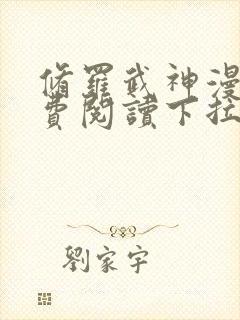 脩羅武神漫
費閱讀下拉
劉家宇